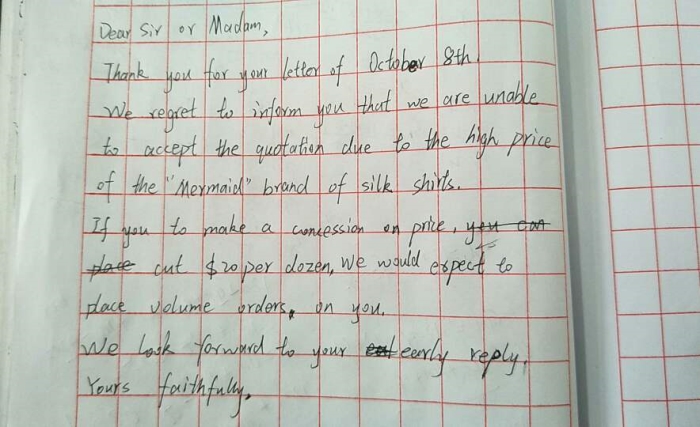 Dear Sir or Madam,
Thank you for your letter of October 8th.
We regret to inform you that we are unable
to accept the quotation due to the high price
of the "Mermaid" brand of silk shirts.
If you to make a concession on price, you can
place cut $20 per dozen, We would expect to
place volume orders. on you.
We look forward to your eerly reply.
Yours faithfully,